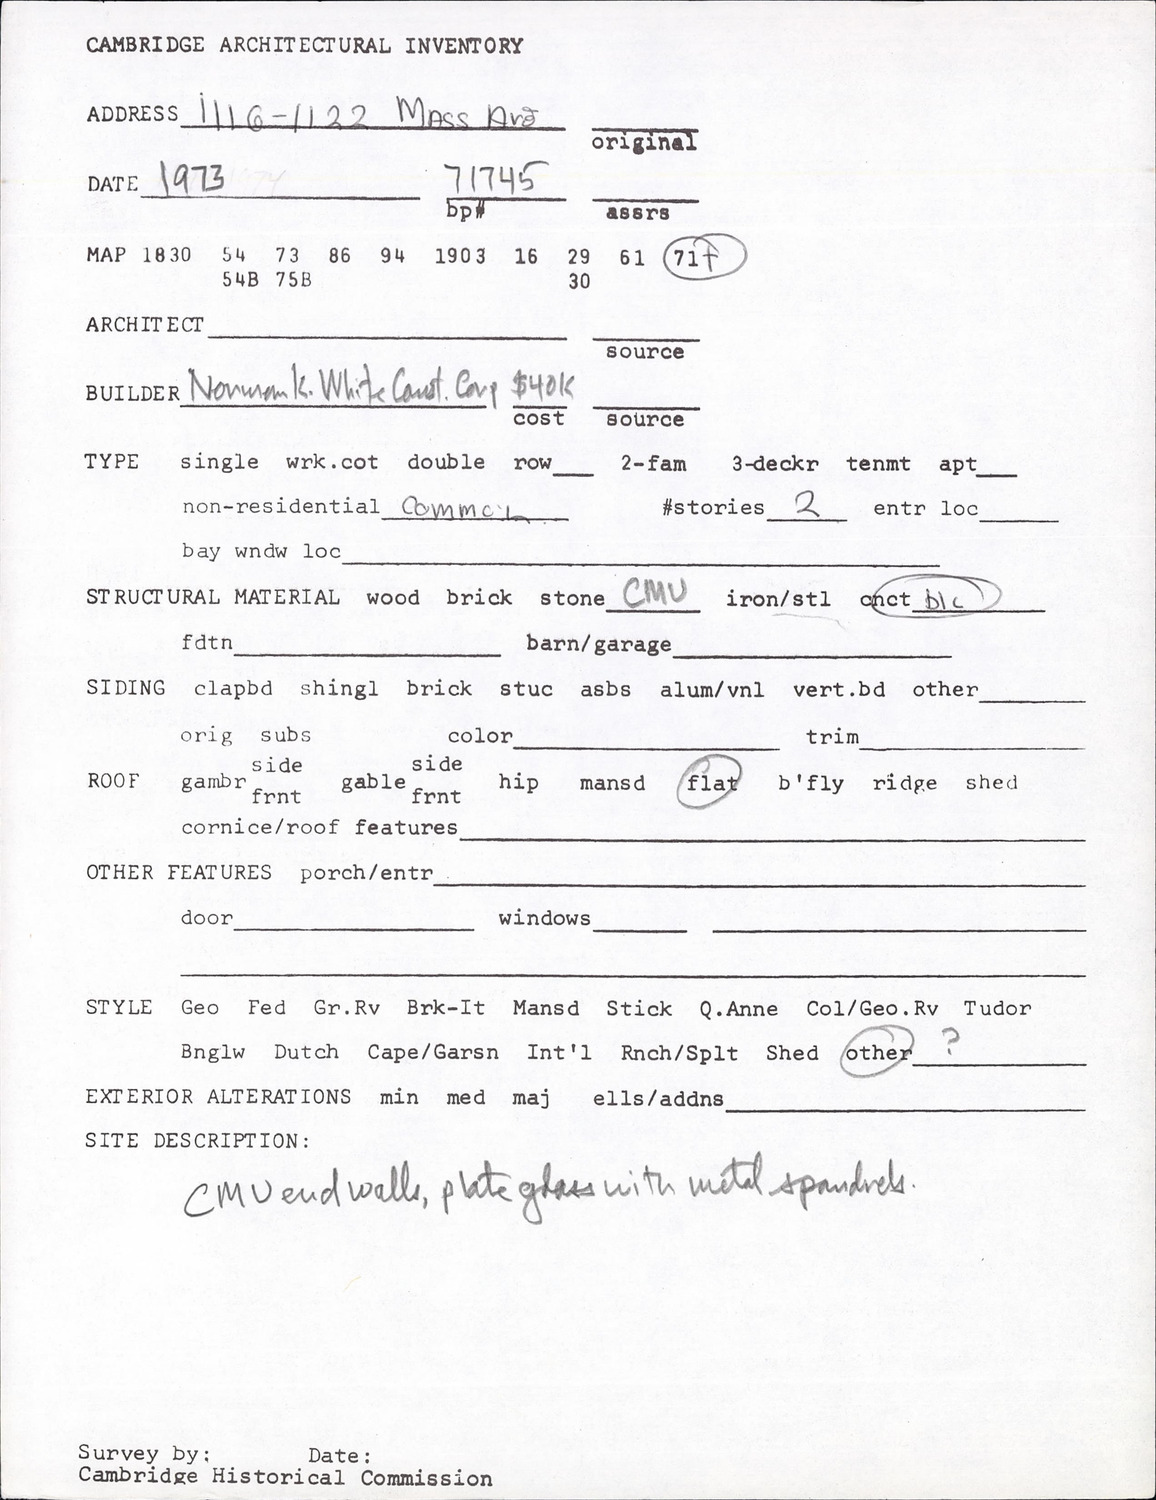 CAMBRIDGE ARCHITECTURAL INVENTORY
ADDRESS 1116-1122 Mass Ave
original
DATE 1973 71745
bp# assrs
MAP 1830 54 73 86 94 1903 16 29 61 71+
54B 75B 30
ARCHITECT
source
BUILDER Norman K. White Const. Corp $40K
cost source
TYPE single wrk.cot double row 2-fam 3-deckr tenmt apt
non-residential Commc'l #stories 2 entr loc
bay wndw loc
STRUCTURAL MATERIAL wood brick stone CMU iron/stl cnct blc
fdtn barn/garage
SIDING clapbd shingl brick stuc asbs alum/vnl vert.bd other
orig subs color trim
side side
ROOF gambr gable hip mansd flat b'fly ridge shed
frnt frnt
cornice/roof features
OTHER FEATURES porch/entr
door windows
STYLE Geo Fed Gr.Rv Brk-It Mansd Stick Q.Anne Col/Geo.Rv Tudor
Bnglw Dutch Cape/Garsn Int'l Rnch/Splt Shed other ?
EXTERIOR ALTERATIONS min med maj ells/addns
SITE DESCRIPTION:
CMU end walls, plate glass with metal spandrels.
Survey by: Date:
Cambridge Historical Commission